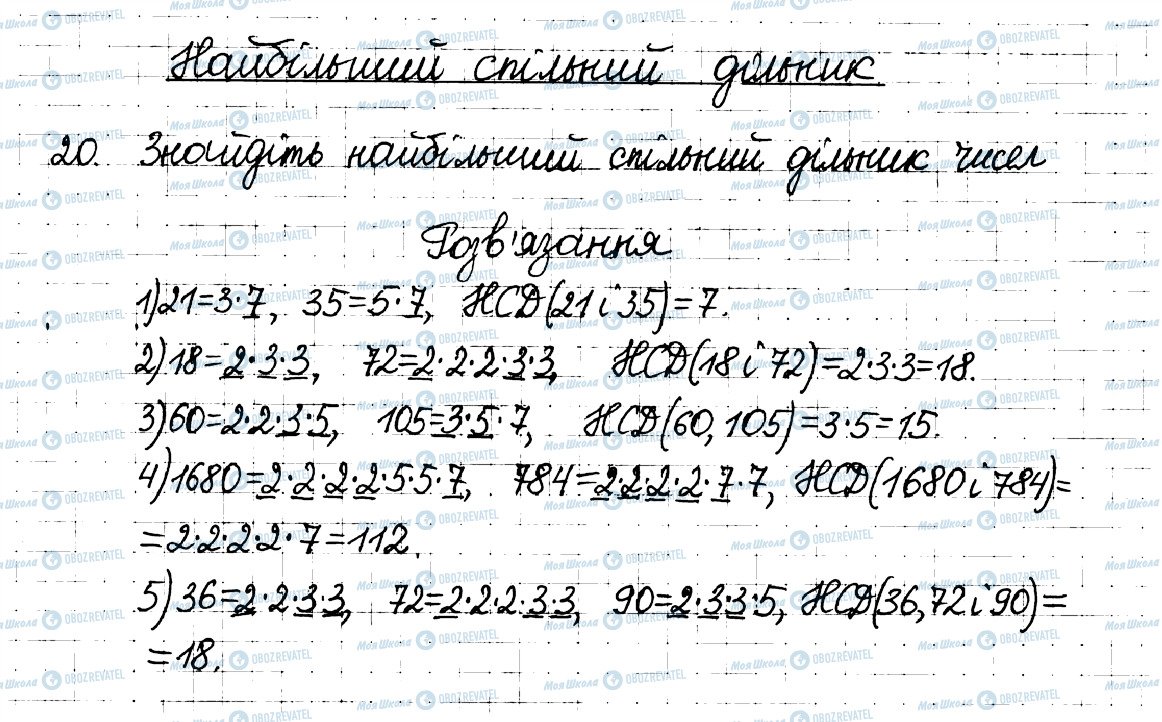 Найбільший спільний дільник
20. Знайдіть найбільший спільний дільник чисел
Розв'язання
1) 21=3·7, 35=5·7, НСД(21 і 35)=7.
2) 18=2·3·3, 72=2·2·2·3·3, НСД(18 і 72)=2·3·3=18.
3) 60=2·2·3·5, 105=3·5·7, НСД(60, 105)=3·5=15.
4) 1680=2·2·2·2·5·5·7, 784=2·2·2·2·7·7, НСД(1680 і 784)=
=2·2·2·2·7=112.
5) 36=2·2·3·3, 72=2·2·2·3·3, 90=2·3·3·5, НСД(36, 72 і 90)=
=18.